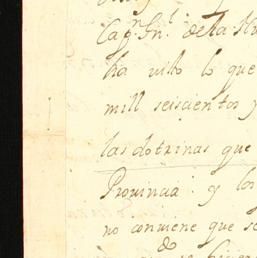 Cap.n Gn.l de la
ha visto lo que
mill seiscientos y
las dotrinas que
Provincia: y los
no conviene que se
do